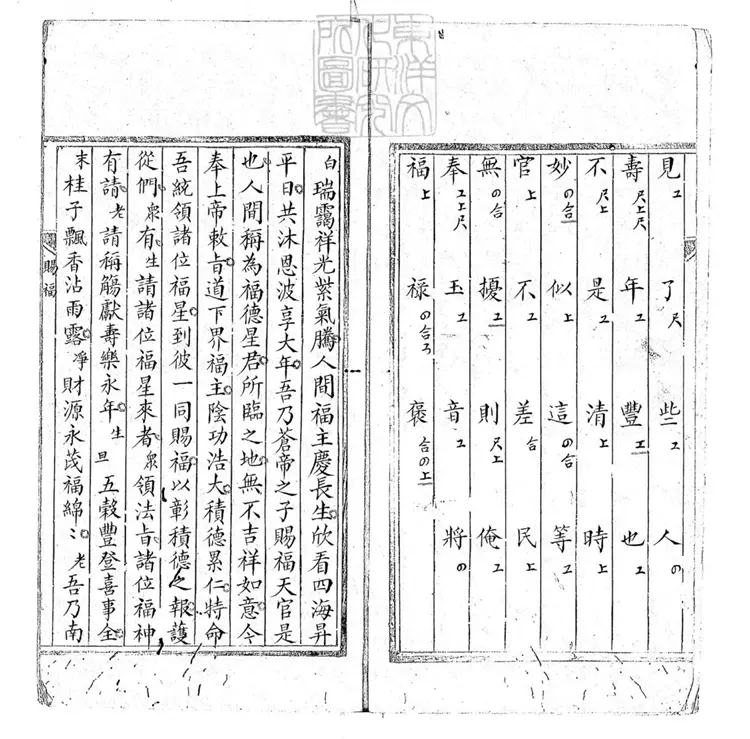 東洋文
化研究
所圖書
見工了尺些工人の
壽尺上尺年工豐工也工
不尺上是工清上時上
妙の合似上這の合等工
官上不工差合民上
無の合擾工則尺上俺工
奉工上尺玉工音工將の
福上祿の合褒合の上
白瑞靄祥光紫氣騰人間福主慶長生欣看四海昇
平日共沐恩波享大年吾乃蒼帝之子賜福天官是
也人間稱為福德星君所臨之地無不吉祥如意今
奉上帝敕旨道下界福主陰功浩大積德累仁特命
吾統領諸位福星到彼一同賜福以彰積德之報護
從們衆有生請諸位福星來者衆領法旨諸位福神
有請老請稱觴獻壽樂永年生旦五穀豐登喜事全
末桂子飄香沾雨露凈財源永茂福綿〻老吾乃南
賜福